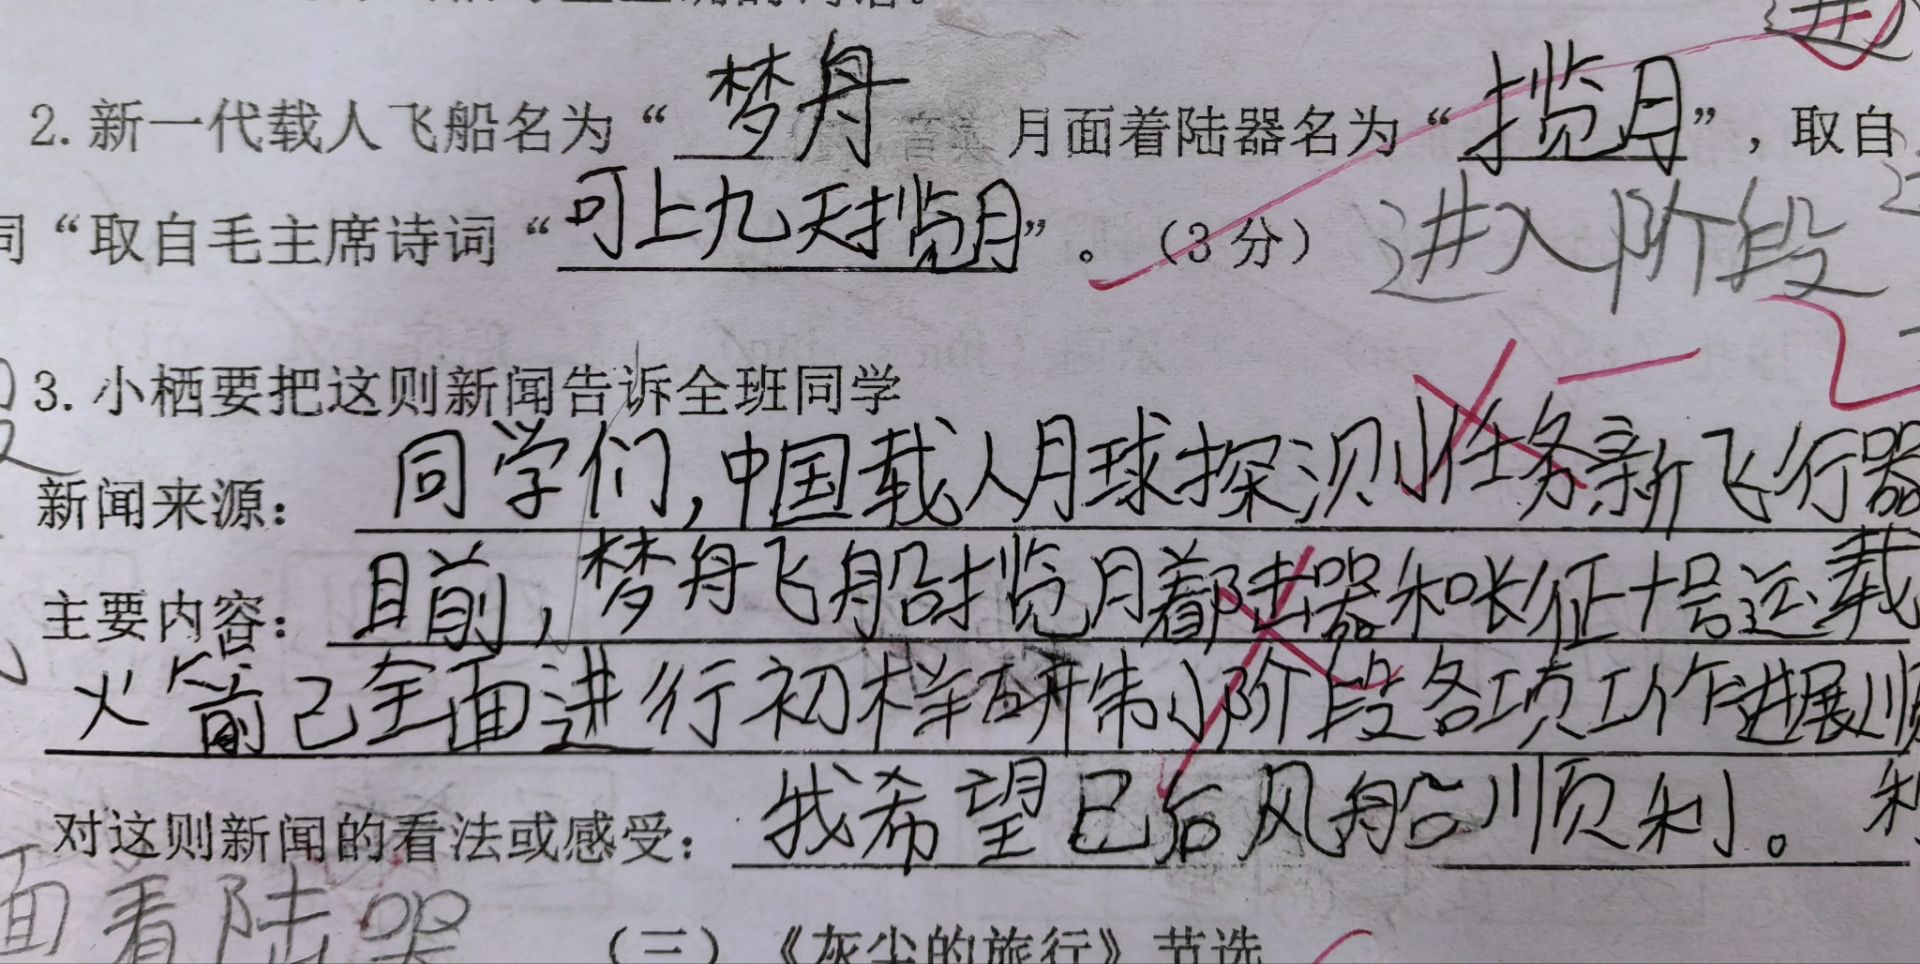 2.新一代载人飞船名为“梦舟 月面着陆器名为“揽月”，取自
词“取自毛主席诗词“可上九天揽月”。（3分）
进入阶段
3.小栖要把这则新闻告诉全班同学
新闻来源：同学们,中国载人月球探测任务新飞行器
主要内容：目前,梦舟飞船揽月着陆器和长征十号运载
火箭已全面进行初样研制阶段各项工作进展顺
利
对这则新闻的看法或感受：我希望已后风船顺利。
面着陆器
（三）《灰尘的旅行》节选